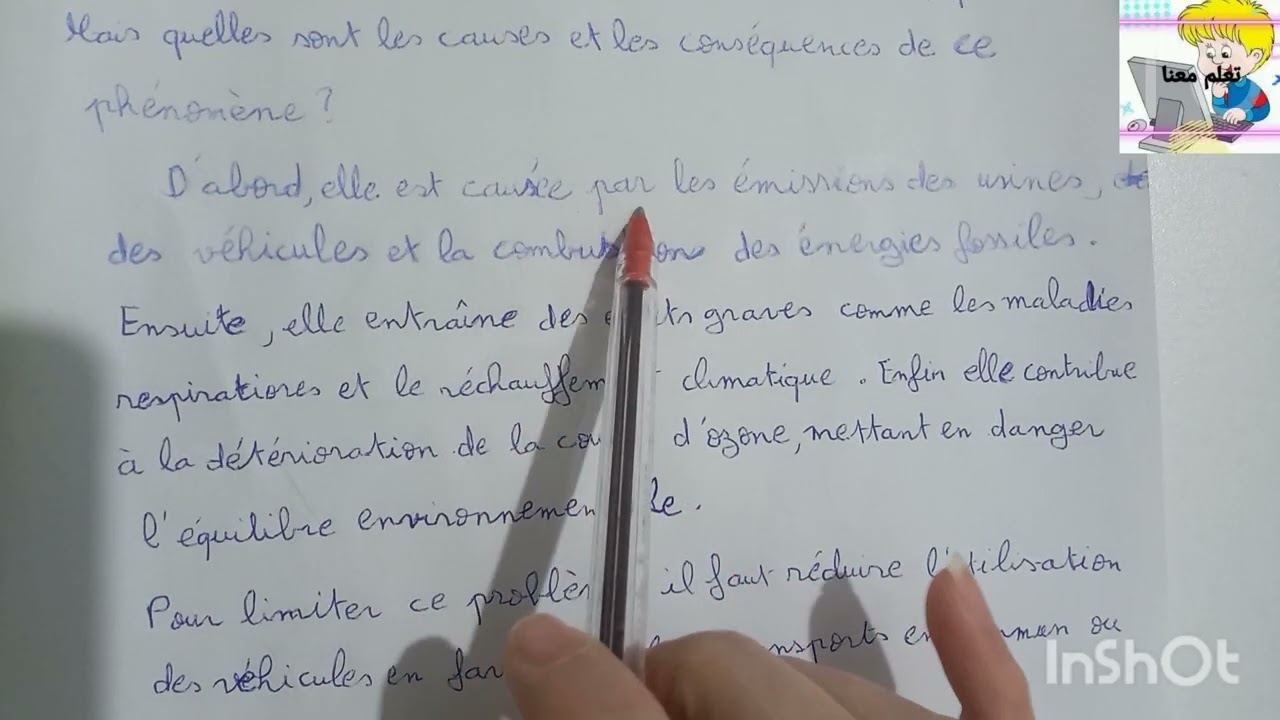 Mais quelles sont les causes et les conséquences de ce
phénomène ?
D'abord, elle est causée par les émissions des usines,
des véhicules et la des énergies fossiles.
Ensuite, elle entraîne des graves comme les maladies
respiratiores et le climatique. Enfin elle contribue
à la détérioration de la d'ozone, mettant en danger
l'équilibre
Pour limiter ce il faut réduire l'utilisation
des véhicules en ou
تعلم معنا
InShOt